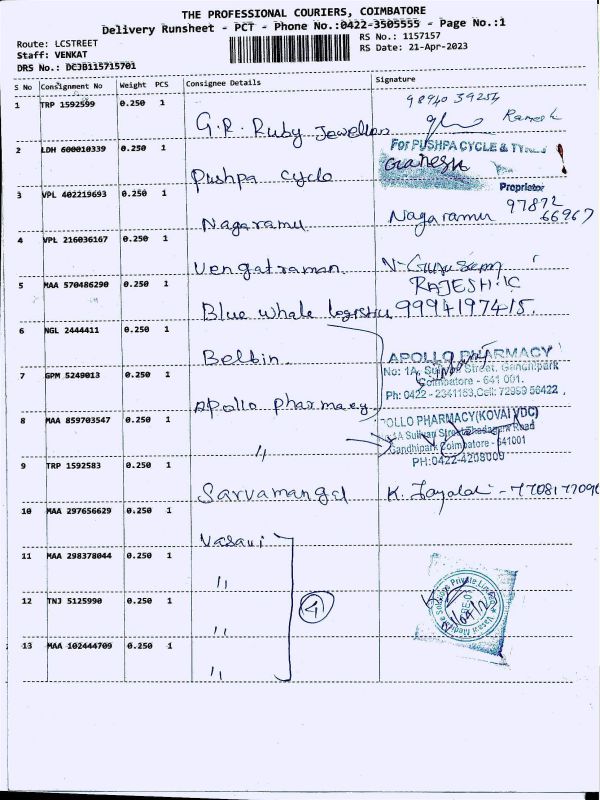 THE PROFESSIONAL COURIERS, COIMBATORE
Delivery Runsheet - PCT - Phone No.:0422-3505555 - Page No.:1
Route: LCSTREET
RS No.: 1157157
Staff: VENKAT
RS Date: 21-Apr-2023
DRS No.: DCJB115715701
S No Consignment No Weight PCS Consignee Details Signature
1 TRP 1592599 0.250 1 G.R. Ruby Jewellers 98940 39254 Ramesh
2 LDH 600010339 0.250 1 Pushpa cycle For PUSHPA CYCLE & Ganesh Proprietor
3 VPL 402219693 0.250 1 Nagaramu Nagaramu 97872 66967
4 VPL 216036167 0.250 1 Vengatraman
5 MAA 570486290 0.250 1 Blue whale logistics RAJESH.K 9994197415.
6 NGL 2444411 0.250 1 Belbin
7 GPM 5249013 0.250 1 Apollo pharmacy
APOLLO PHARMACY
No: 1A, Sullivan Street, Gandhipark
Coimbatore - 641 001.
Ph: 0422 - 2341163, Cell: 72999 56422,
8 MAA 859703547 0.250 1 "
APOLLO PHARMACY(KOVAI VDC)
1A Sullivan Street
Gandhipark Coimbatore - 641001
PH:0422-4208009
9 TRP 1592583 0.250 1 Sarvamangal K.
10 MAA 297656629 0.250 1 Vasavi
11 MAA 298378044 0.250 1 "
12 TNJ 5125990 0.250 1 " 4
13 MAA 102444709 0.250 1 "